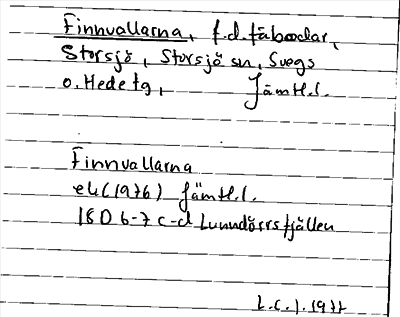 Finnvallarna, f.d. fäbodar,
Storsjö, Storsjö sn, Svegs
o. Hede tg, Jämtl.l.
Finnvallarna
ek (1976) Jämtl.l.
18D 6-7 c-d Lunndörrsfjällen
L.C.J. 1977